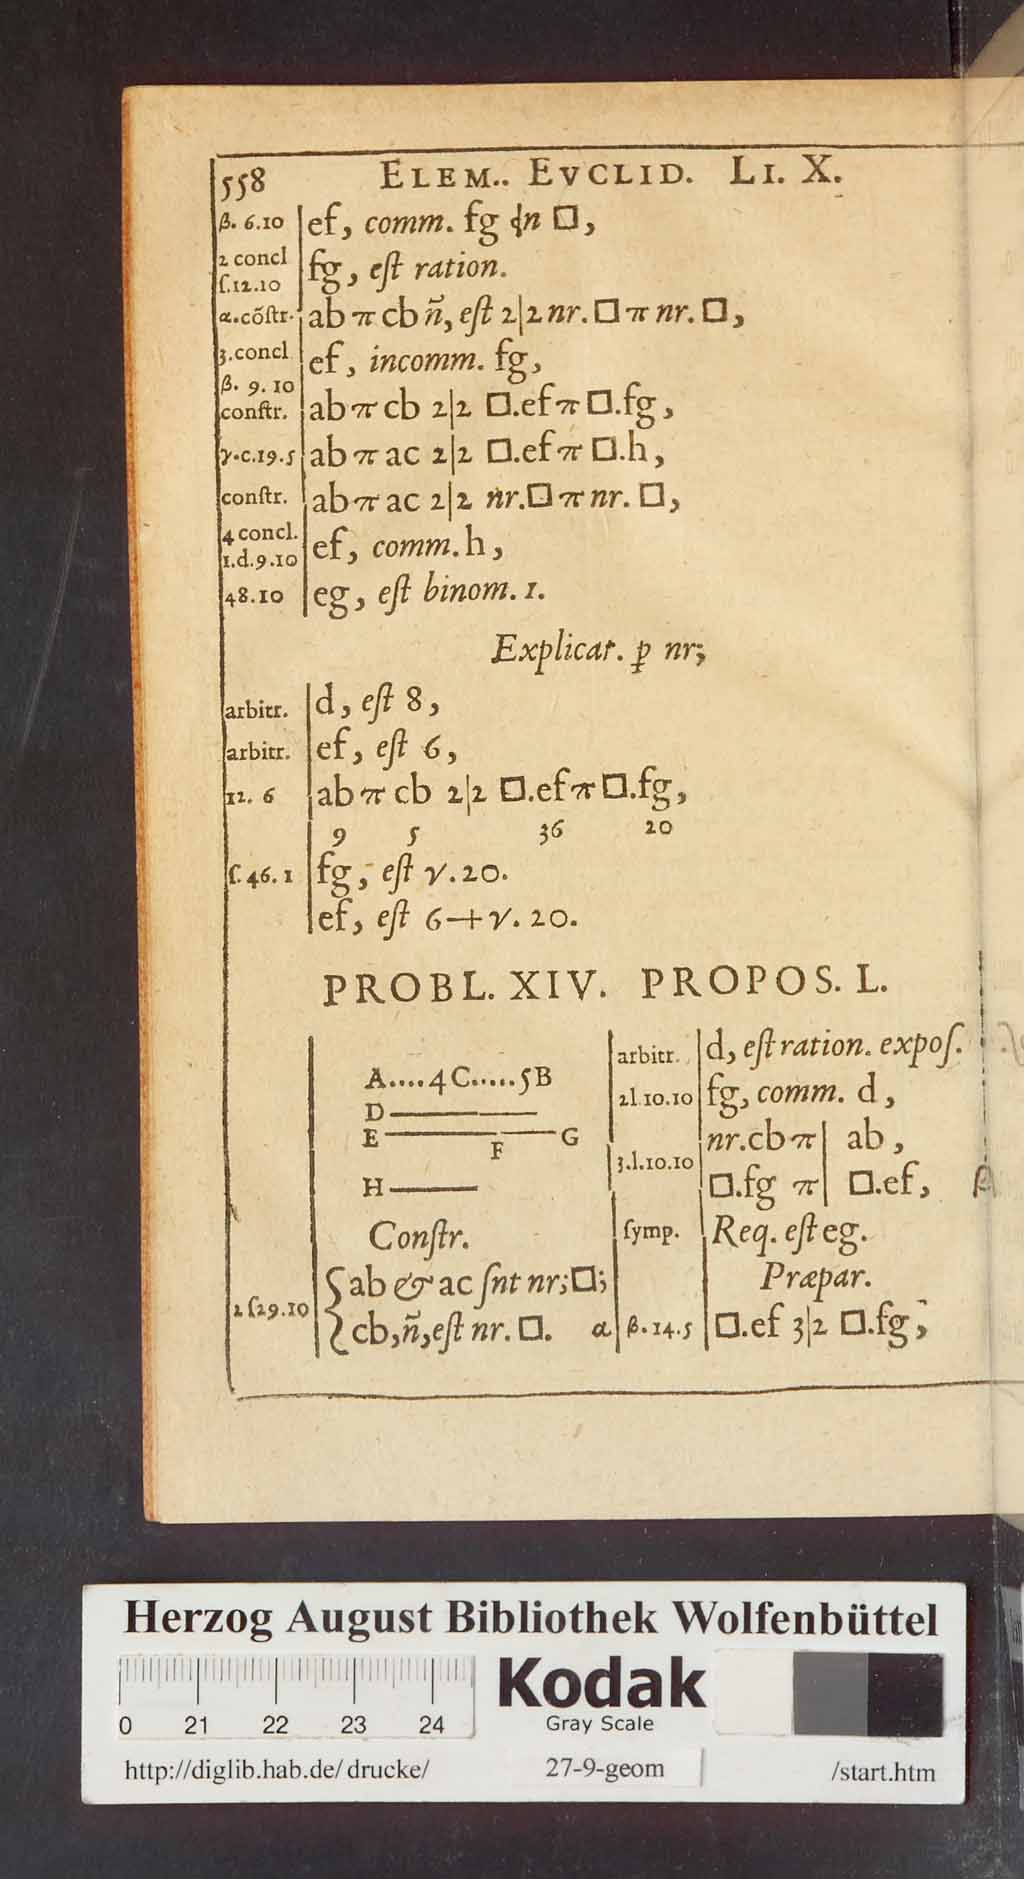 558 ELEM.. EVCLID. LI. X.
β. 6.10 ef, comm. fg □,
2 concl
ſ.12.10 fg, eſt ration.
α.cõſtr. ab π cb ñ, eſt 2|2 nr. □ π nr. □,
3.concl ef, incomm. fg,
β. 9. 10
conſtr. ab π cb 2|2 □.ef π □.fg,
γ.c.19.5 ab π ac 2|2 □.ef π □.h,
conſtr. ab π ac 2|2 nr.□ π nr. □,
4 concl.
1.d.9.10 ef, comm. h,
48.10 eg, eſt binom. 1.
Explicat. ꝑ nr;
arbitr. d, eſt 8,
arbitr. ef, eſt 6,
12. 6 ab π cb 2|2 □.ef π □.fg,
9 5 36 20
ſ.46.1 fg, eſt γ.20.
ef, eſt 6+γ. 20.
PROBL. XIV. PROPOS. L.
A....4C.....5B
D
E F G
H
Conſtr.
2 ſ29.10 {ab & ac ſnt nr;□;
cb,ñ,eſt nr. □. α
arbitr. d, eſt ration. expoſ.
2l.10.10 fg, comm. d,
3.l.10.10 nr.cb π| ab,
□.fg π| □.ef, β
ſymp. Req. eſt eg.
Præpar.
β.14.5 □.ef 3|2 □.fg,
Herzog August Bibliothek Wolfenbüttel
0 21 22 23 24
Kodak
Gray Scale
http://diglib.hab.de/drucke/ 27-9-geom /start.htm